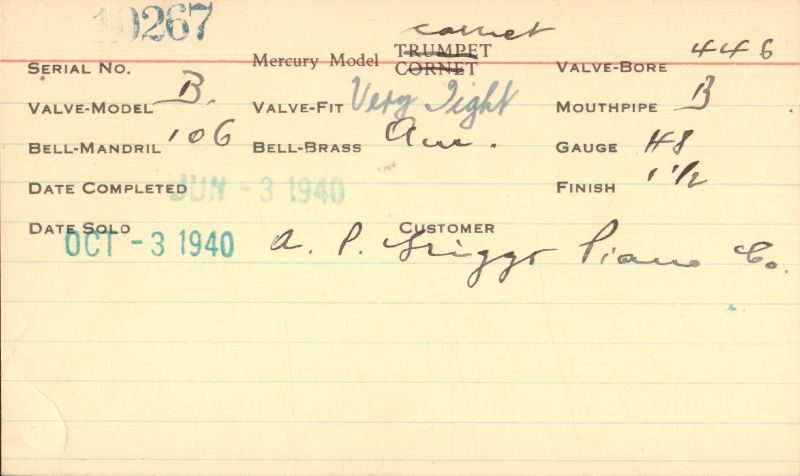 10267 cornet
SERIAL NO. Mercury Model TRUMPET CORNET VALVE-BORE 446
VALVE-MODEL B. VALVE-FIT Very Tight MOUTHPIPE B
BELL-MANDRIL 106 BELL-BRASS Am. GAUGE #8
DATE COMPLETED JUN - 3 1940 FINISH 1 1/2
DATE SOLD OCT - 3 1940 CUSTOMER A. P. Griggs Piano Co.